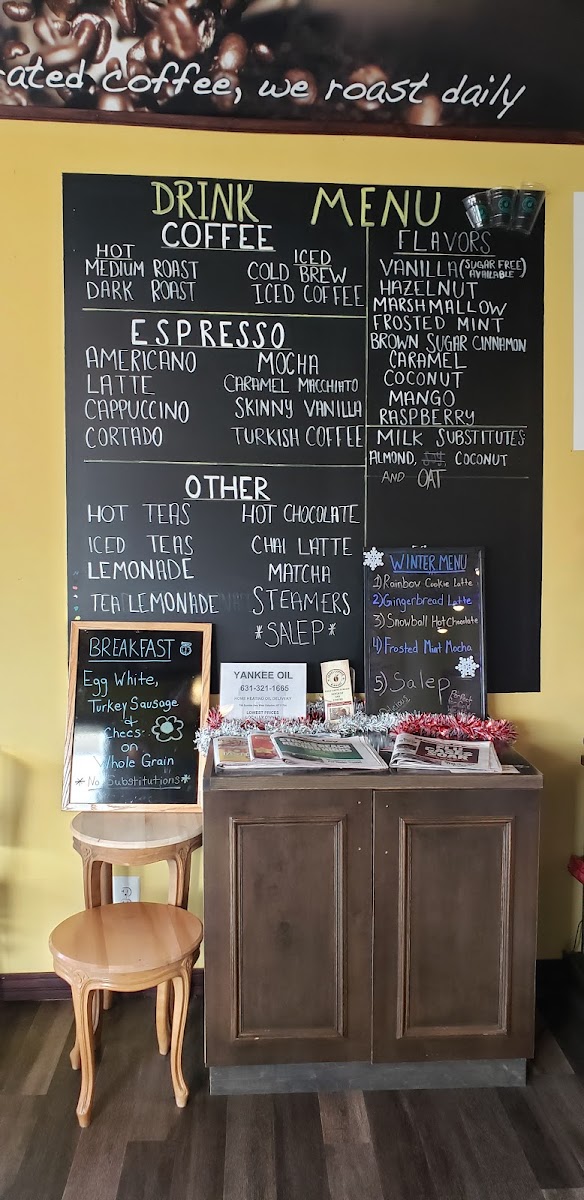 ated coffee, we roast daily
DRINK MENU
COFFEE
HOT
MEDIUM ROAST
DARK ROAST
ICED
COLD BREW
ICED COFFEE
ESPRESSO
AMERICANO
LATTE
CAPPUCCINO
CORTADO
MOCHA
CARAMEL MACCHIATO
SKINNY VANILLA
TURKISH COFFEE
OTHER
HOT TEAS
ICED TEAS
LEMONADE
TEA LEMONADE
HOT CHOCOLATE
CHAI LATTE
MATCHA
STEAMERS
*SALEP*
FLAVORS
VANILLA (SUGAR FREE AVAILABLE)
HAZELNUT
MARSHMALLOW
FROSTED MINT
BROWN SUGAR CINNAMON
CARAMEL
COCONUT
MANGO
RASPBERRY
MILK SUBSTITUTES
ALMOND, COCONUT
AND OAT
WINTER MENU
1) Rainbow Cookie Latte
2) Gingerbread Latte
3) Snowball Hot Chocolate
4) Frosted Mint Mocha
5) Salep
BREAKFAST
Egg White,
Turkey Sausage
&
Chees
on
Whole Grain
*No Substitutions*
YANKEE OIL
631-321-1665
HOME HEATING OIL DELIVERY
LOWEST PRICES